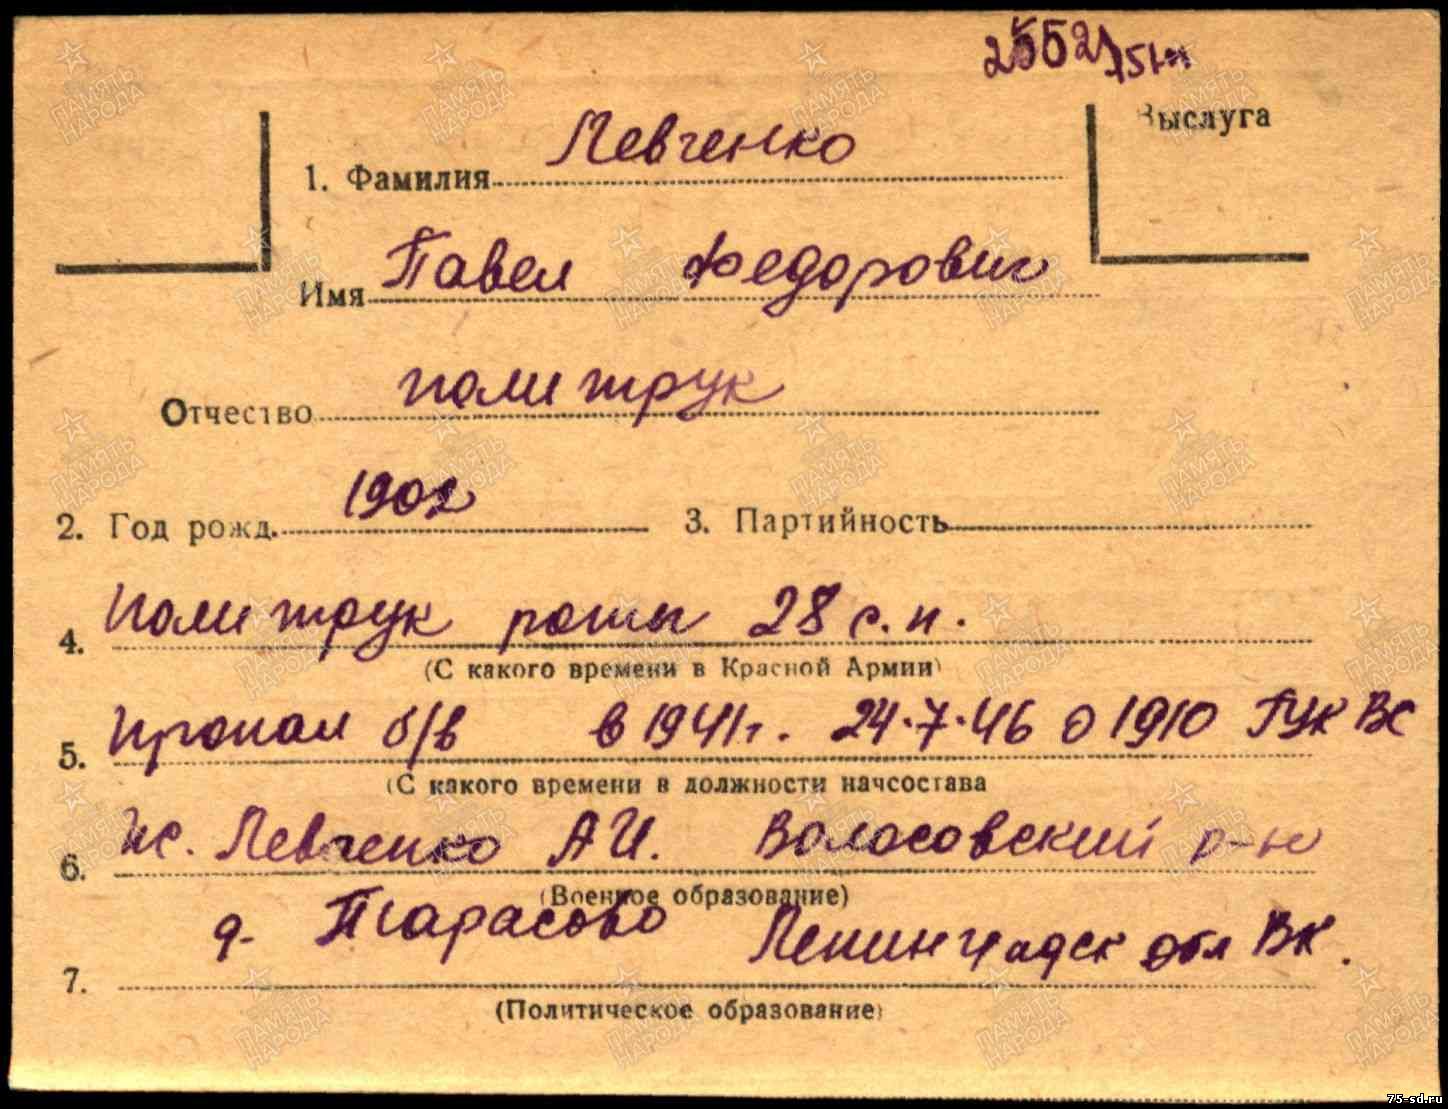 25521
Выслуга
1. Фамилия Левченко
Имя Павел Федорович
Отчество политрук
2. Год рожд. 1902 3. Партийность
4. Политрук роты 28 с.п.
(С какого времени в Красной Армии)
5. Пропал б/в в 1941 г. 24.7.46 01910 ГУК ВС
(С какого времени в должности начсостава
6. ж. Левченко А.И. Волосовский р-н
(Военное образование)
д. Тарасово Ленинградск обл ВК.
7.
(Политическое образование)
ПАМЯТЬ НАРОДА
75-sd.ru